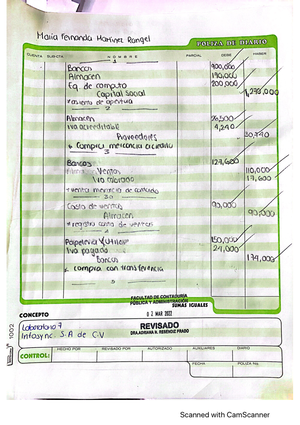 Maria Fernanda Martinez Rangel
POLIZA DE DIARIO
CUENTA SUB-CTA NOMBRE PARCIAL DEBE HABER
1
Bancos 900,000
Almacen 190,000
Eq. de computo 200,000
Capital Social 1,290,000
*asiento de apertura
2
Almacen 26,500
Iva acreditable 4,240
Proveedores 30,740
* Compra mercancia credito
3
Bancos 127,600
Ventas 110,000
Iva cobrado 17,600
*venta mercancia de contado
Costo de ventas 90,000
Almacen 90,000
*registro costo de ventas
4
Papeleria y Utiles 150,000
Iva pagado 24,000
Bancos 174,000
* compra con transferencia
5
FACULTAD DE CONTADURÍA
PÚBLICA Y ADMINISTRACIÓN
SUMAS IGUALES
CONCEPTO
0 2 MAR 2022
Laboratorio 7
Infosync. S.A. de C.V
REVISADO
DRA.ADRIANA N. RESENDIZ PRADO
1002
CONTROL:
HECHO POR REVISADO POR AUTORIZADO AUXILIARES DIARIO
FECHA POLIZA No.
Scanned with CamScanner